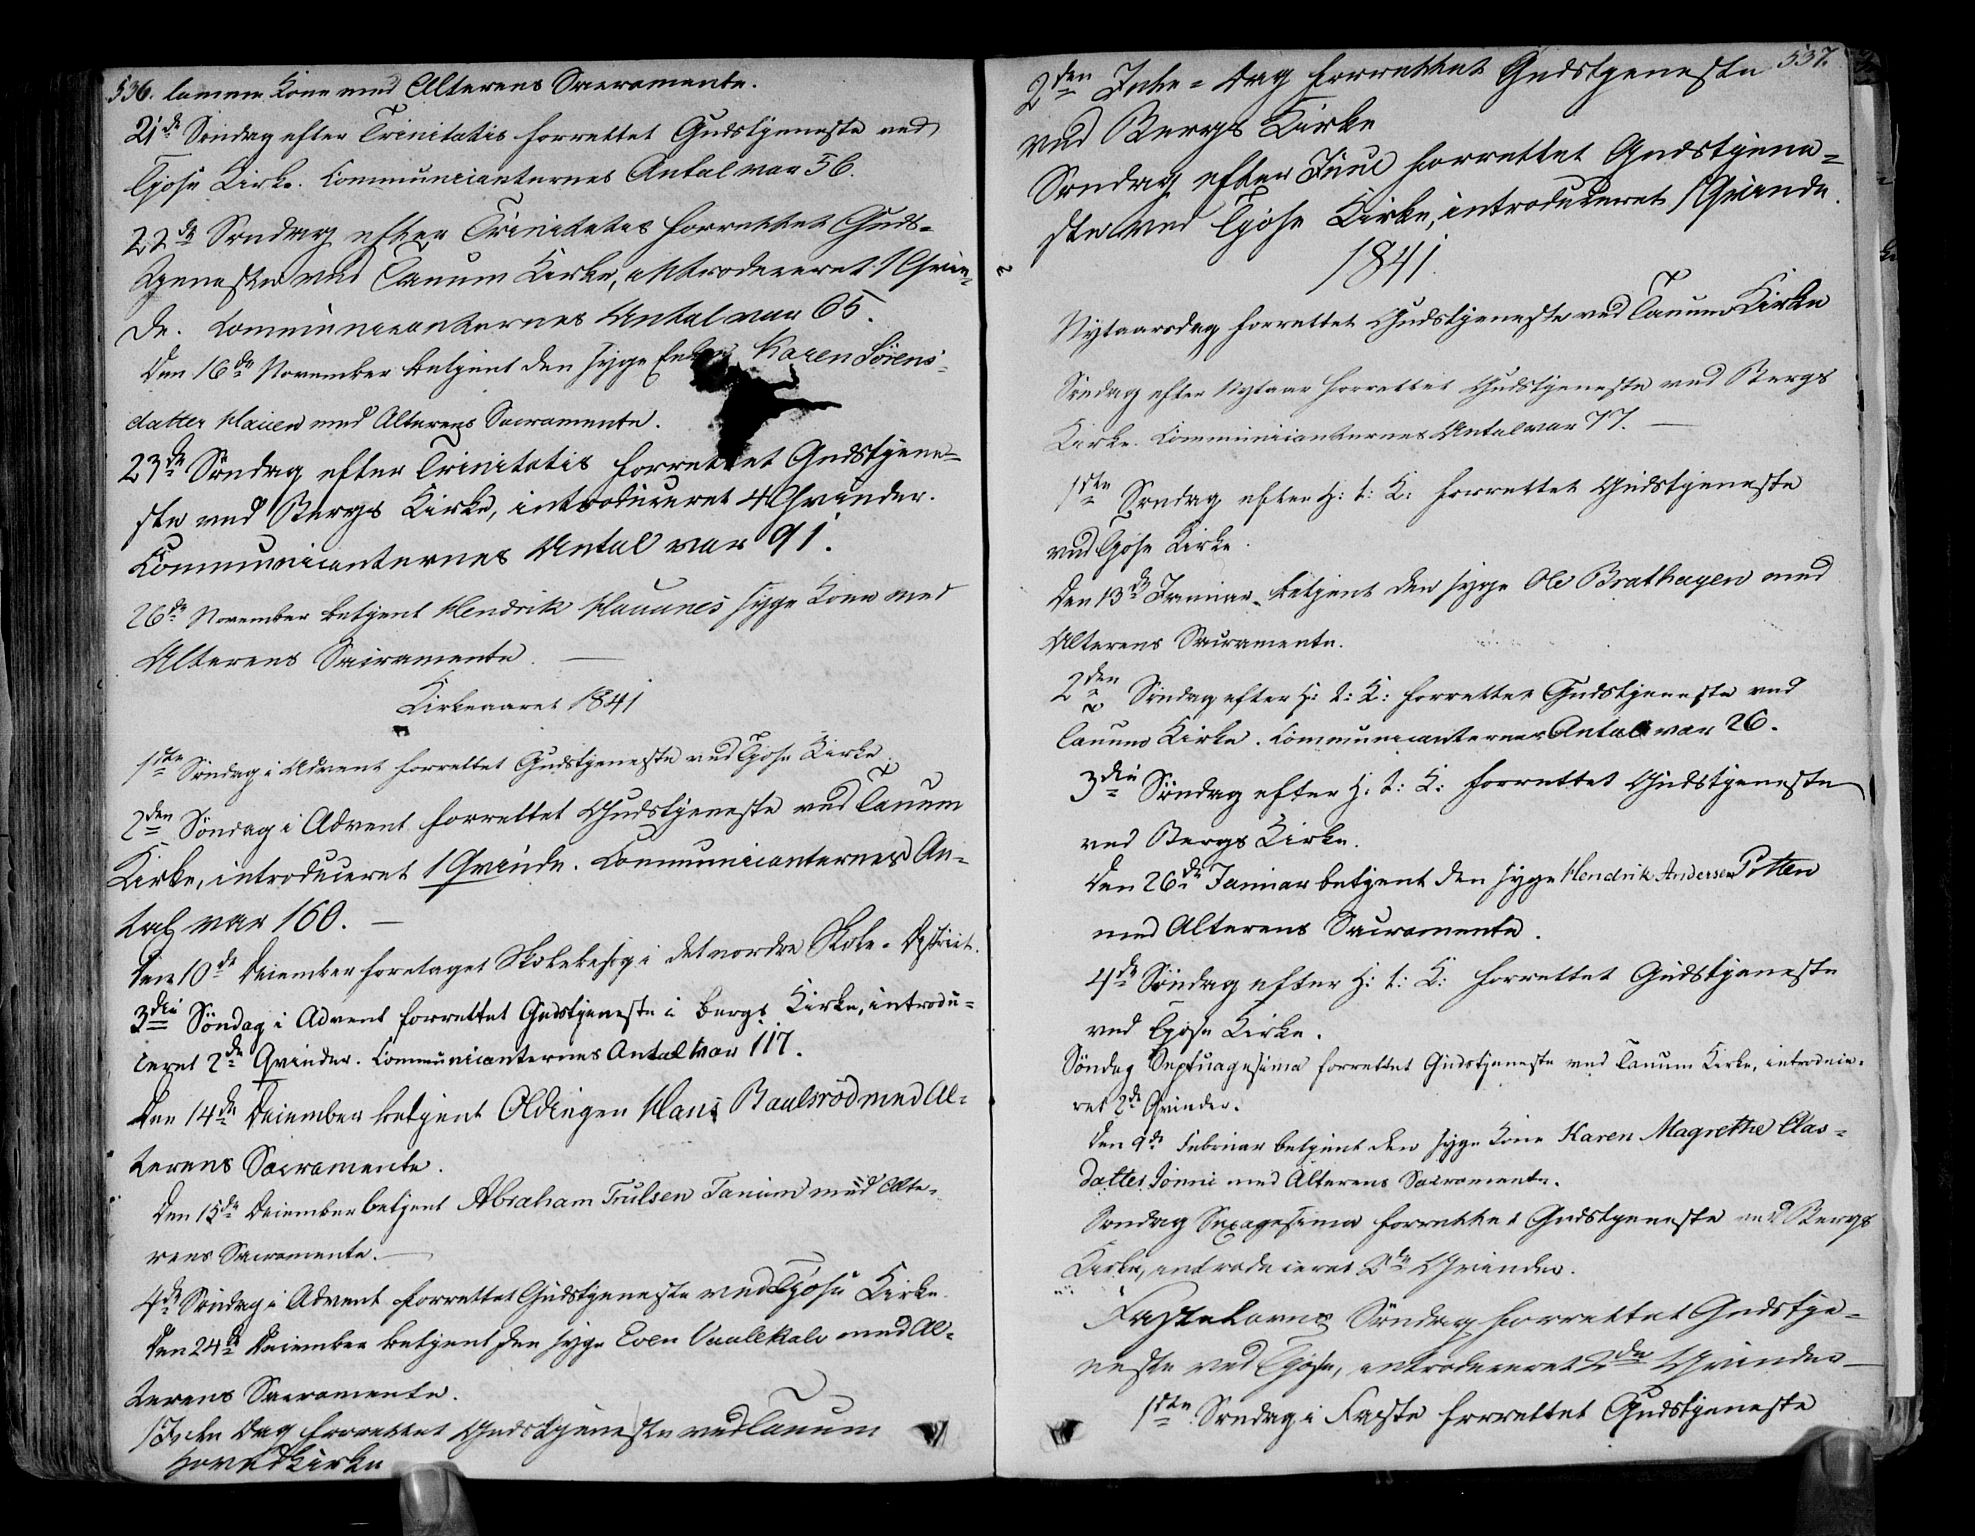 536. lamme Kone med Alterens Sacramente.
21de Søndag efter Trinitatis forrettet Gudstjeneste ved
Tjøse Kirke. Communicanternes Antal var 56.
22de Søndag efter Trinitatis forrettet Guds-
tjeneste ved Tanum Kirke, introduceret 1 Qvin-
de. Communicanternes Antal var 65.
Den 16de November betjent den syge Enke Karen Sörens-
datter Hauen med Alterens Sacramente.
23de Søndag efter Trinitatis forrettet Gudstjene-
ste ved Bergs Kirke, introduceret 4 Qvinder.
Communicanternes Antal var 91.
26de November betjent Hendrik Hauanes syge Kone med
Alterens Sacramente. —
Kirkeaaret 1841
1ste Søndag i Advent forrettet Gudstjeneste ved Tjøse Kirke.
2den Søndag i Advent forrettet Gudstjeneste ved Tanum
Kirke, introduceret 1 Qvinde. Communicanternes An-
tal var 160. —
Den 10de December foretaget Skolebesøg i det nordre Skole-District.
3die Søndag i Advent forrettet Gudstjeneste i Bergs Kirke, introdu-
ceret 2de Qvinder. Communicanternes Antal var 117.
Den 14de December betjent Oldingen Hans Baulsrød med Al-
terens Sacramente.
Den 15de December betjent Abraham Trulsen Tanum med Alte-
rens Sacramente. —
4de Søndag i Advent forrettet Gudstjeneste ved Tjøse Kirke.
Den 24de December betjent den syge Even Vaulekalv med Al-
terens Sacramente.
1ste Dag forrettet Gudstjeneste ved Tanum
Hovedkirke
537.
2den Jule-Dag forrettet Gudstjeneste
ved Bergs Kirke
Søndag efter Juul forrettet Gudstjene-
ste ved Tjøse Kirke, introduceret 1 Qvinde.
1841.
Nytaarsdag forrettet Gudstjeneste ved Tanum Kirke
Søndag efter Nytaar forrettet Gudstjeneste ved Bergs
Kirke. Communicanternes Antal var 77. —
1ste Søndag efter H: t: K: forrettet Gudstjeneste
ved Tjøse Kirke.
Den 13de Januar betjent den syge Ole Brathagen med
Alterens Sacramente.
2den Søndag efter H: t: K: forrettet Gudstjeneste ved
Tanum Kirke. Communicanternes Antal var 26.
3die Søndag efter H: t: K: forrettet Gudstjeneste
ved Bergs Kirke.
Den 26de Januar betjent den syge Hendrik Andersen Potten
med Alterens Sacramente.
4de Søndag efter H: t: K: forrettet Gudstjeneste
ved Tjøse Kirke.
Søndag Septuagesima forrettet Gudstjeneste ved Tanum Kirke, introduce-
ret 2de Qvinder.
Den 9de Februar betjent den syge Kone Karen Magrethe Clas-
datter med Alterens Sacramente.
Søndag Sexagesima forrettet Gudstjeneste ved Bergs
Kirke, introduceret 2de Qvinder.
Fastelavns Søndag forrettet Gudstje-
neste ved Tjøse, introduceret 2de Qvinder —
1ste Søndag i Faste forrettet Gudstjeneste